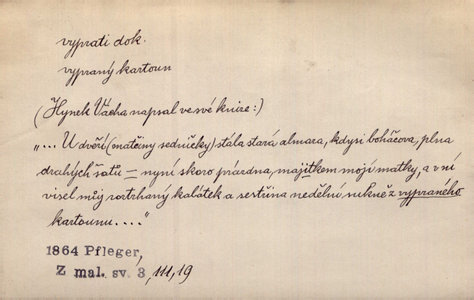 vyprati dok.
vypraný kartoun
(Hynek Vácha napsal ve své knize:)
„... U dveří (matčiny sedničky) stála stará almara, kdysi boháčova, plna
drahých šatů — nyní skoro prázdna, majitkem mojí matky, a v ní
visel můj roztrhaný kabátek a sestřina nedělní sukně z vypraného
kartounu. ..."
1864 Pfleger,
Z mal. sv. 3, 111, 19